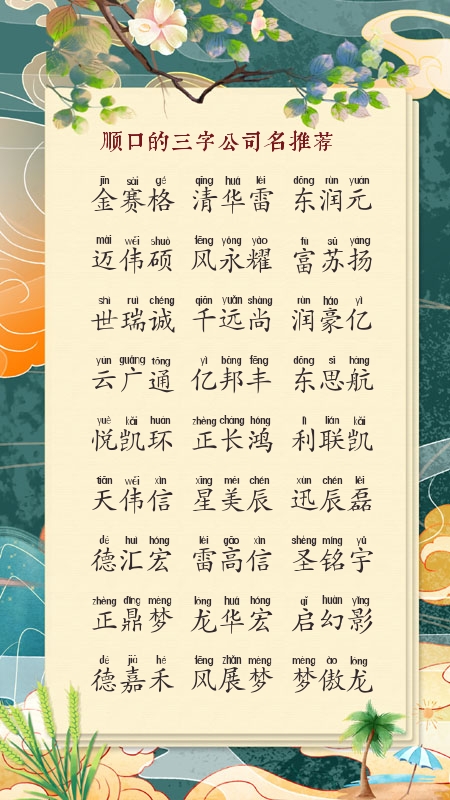 顺口的三字公司名推荐
jīn sài gé qīng huá léi dōng rùn yuán
金赛格 清华雷 东润元
mài wěi shuò fēng yǒng yào fù sū yáng
迈伟硕 风永耀 富苏扬
shì ruì chéng qiān yuǎn shàng rùn háo yì
世瑞诚 千远尚 润豪亿
yún guǎng tōng yì bāng fēng dōng sī háng
云广通 亿邦丰 东思航
yuè kǎi huán zhèng cháng hóng lì lián kǎi
悦凯环 正长鸿 利联凯
tiān wěi xìn xīng měi chén xùn chén lěi
天伟信 星美辰 迅辰磊
dé huì hóng léi gāo xìn shèng míng yǔ
德汇宏 雷高信 圣铭宇
zhèng dǐng mèng lóng huá hóng qǐ huàn yǐng
正鼎梦 龙华宏 启幻影
dé jiā hé fēng zhǎn mèng mèng ào lóng
德嘉禾 风展梦 梦傲龙